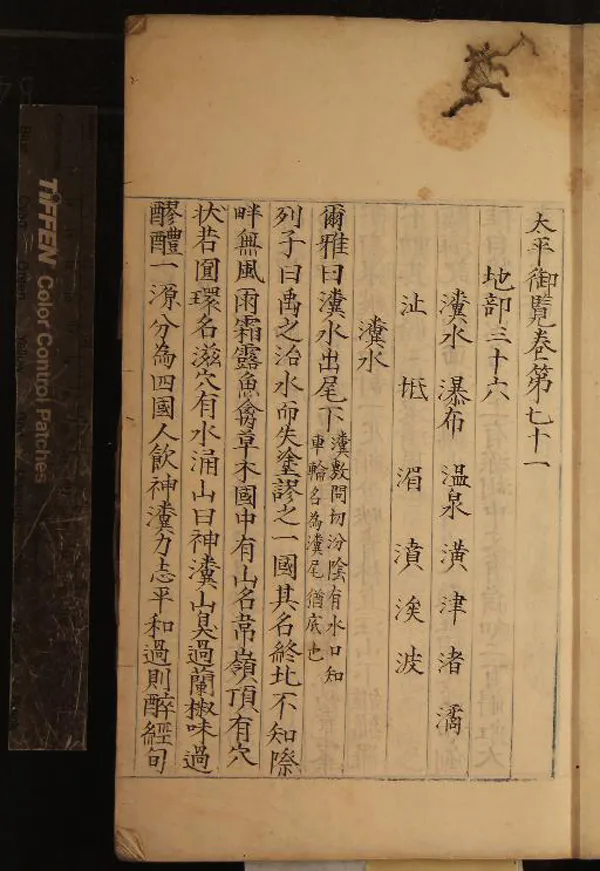 太平御覽卷第七十一
地部三十六
瀵水 瀑布 温泉 潢 津 渚 潏
沚 坻 湄 濆 涘 波
瀵水
爾雅曰瀵水出尾下瀵敷問切汾隂有水口如
車輪名為瀵尾猶底也
列子曰禹之治水而失塗謬之一國其名終北不知際
畔無風雨霜露魚禽草木國中有山名壺嶺頂有穴
状若圓環名滋穴有水涌山曰神瀵山臭過蘭椒味過
醪醴一源分為四國人飲神瀵力志平和過則醉經旬
TIFFEN Color Control Patches